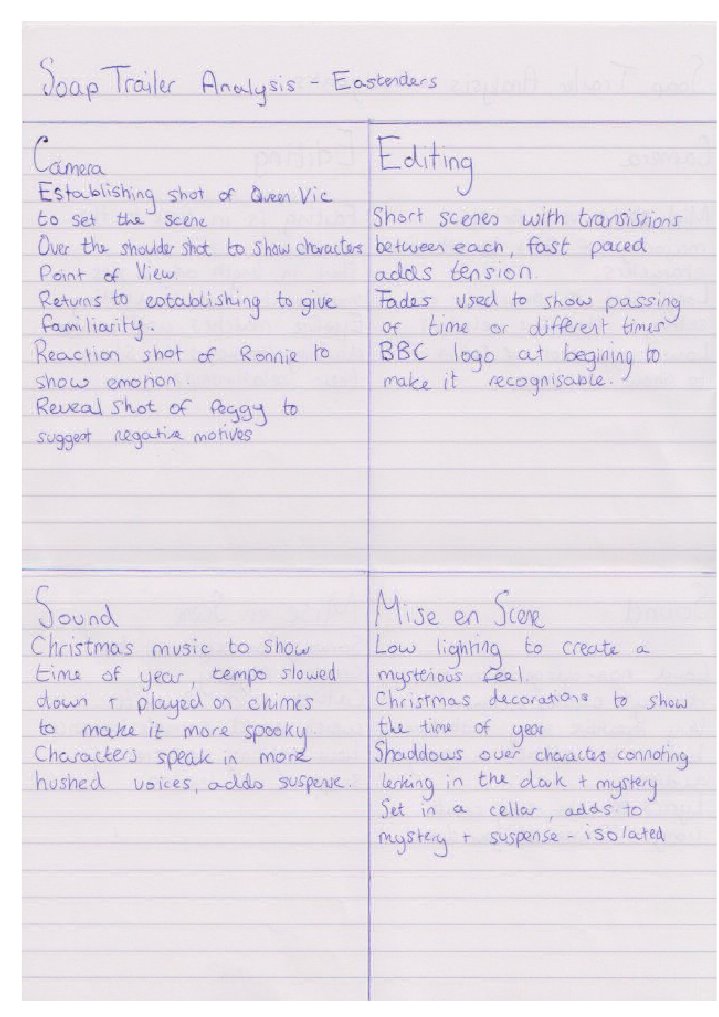 Soap Trailer Analysis - Eastenders
Camera
Establishing shot of Queen Vic
to set the scene
Over the shoulder shot to show characters
Point of View
Returns to establishing to give
familiarity.
Reaction shot of Ronnie to
show emotion.
Reveal shot of Peggy to
suggest negative motives
Editing
Short scenes with transisnions
between each, fast paced
adds tension.
Fades used to show passing
of time or different times
BBC logo at begining to
make it recognisable.
Sound
Christmas music to show
time of year, tempo slowed
down + played on chimes
to make it more spooky.
Characters speak in more
hushed voices, adds suspense.
Mise en Scene
Low lighting to create a
mysterious feel.
Christmas decorations to show
the time of year
Shaddows over charactes connoting
lerking in the dark + mystery
Set in a cellar, adds to
mystery + suspense - isolated